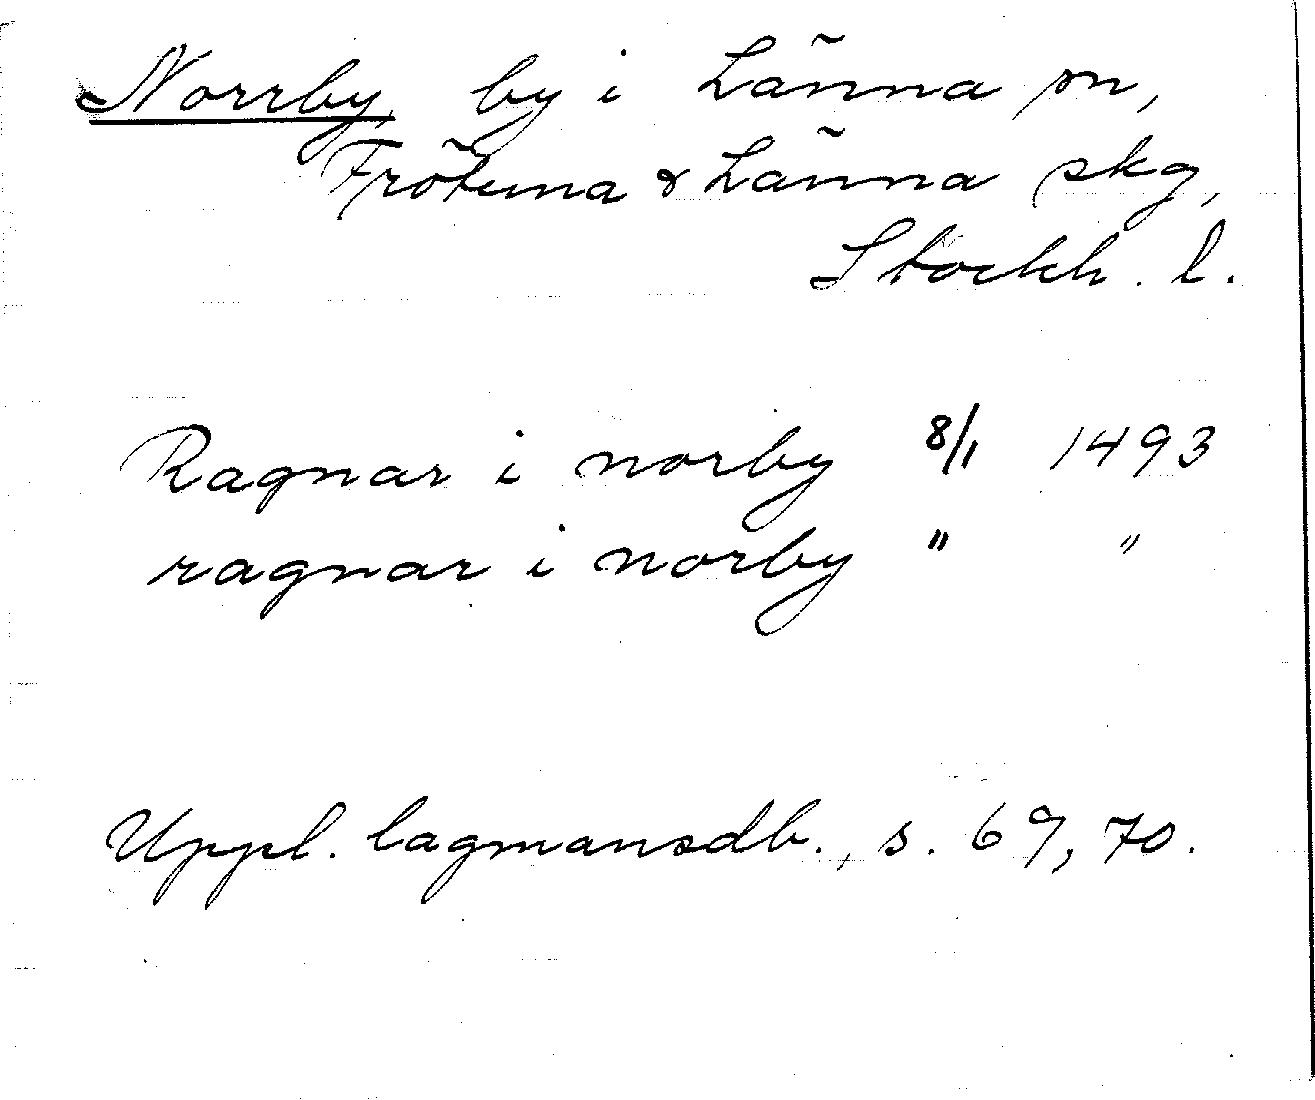 Norrby, by i Länna sn,
Frötuna & Länna skg,
Stockh. l.
Ragnar i norby 8/1 1493
ragnar i norby " "
Uppl. lagmansdb., s. 69, 70.